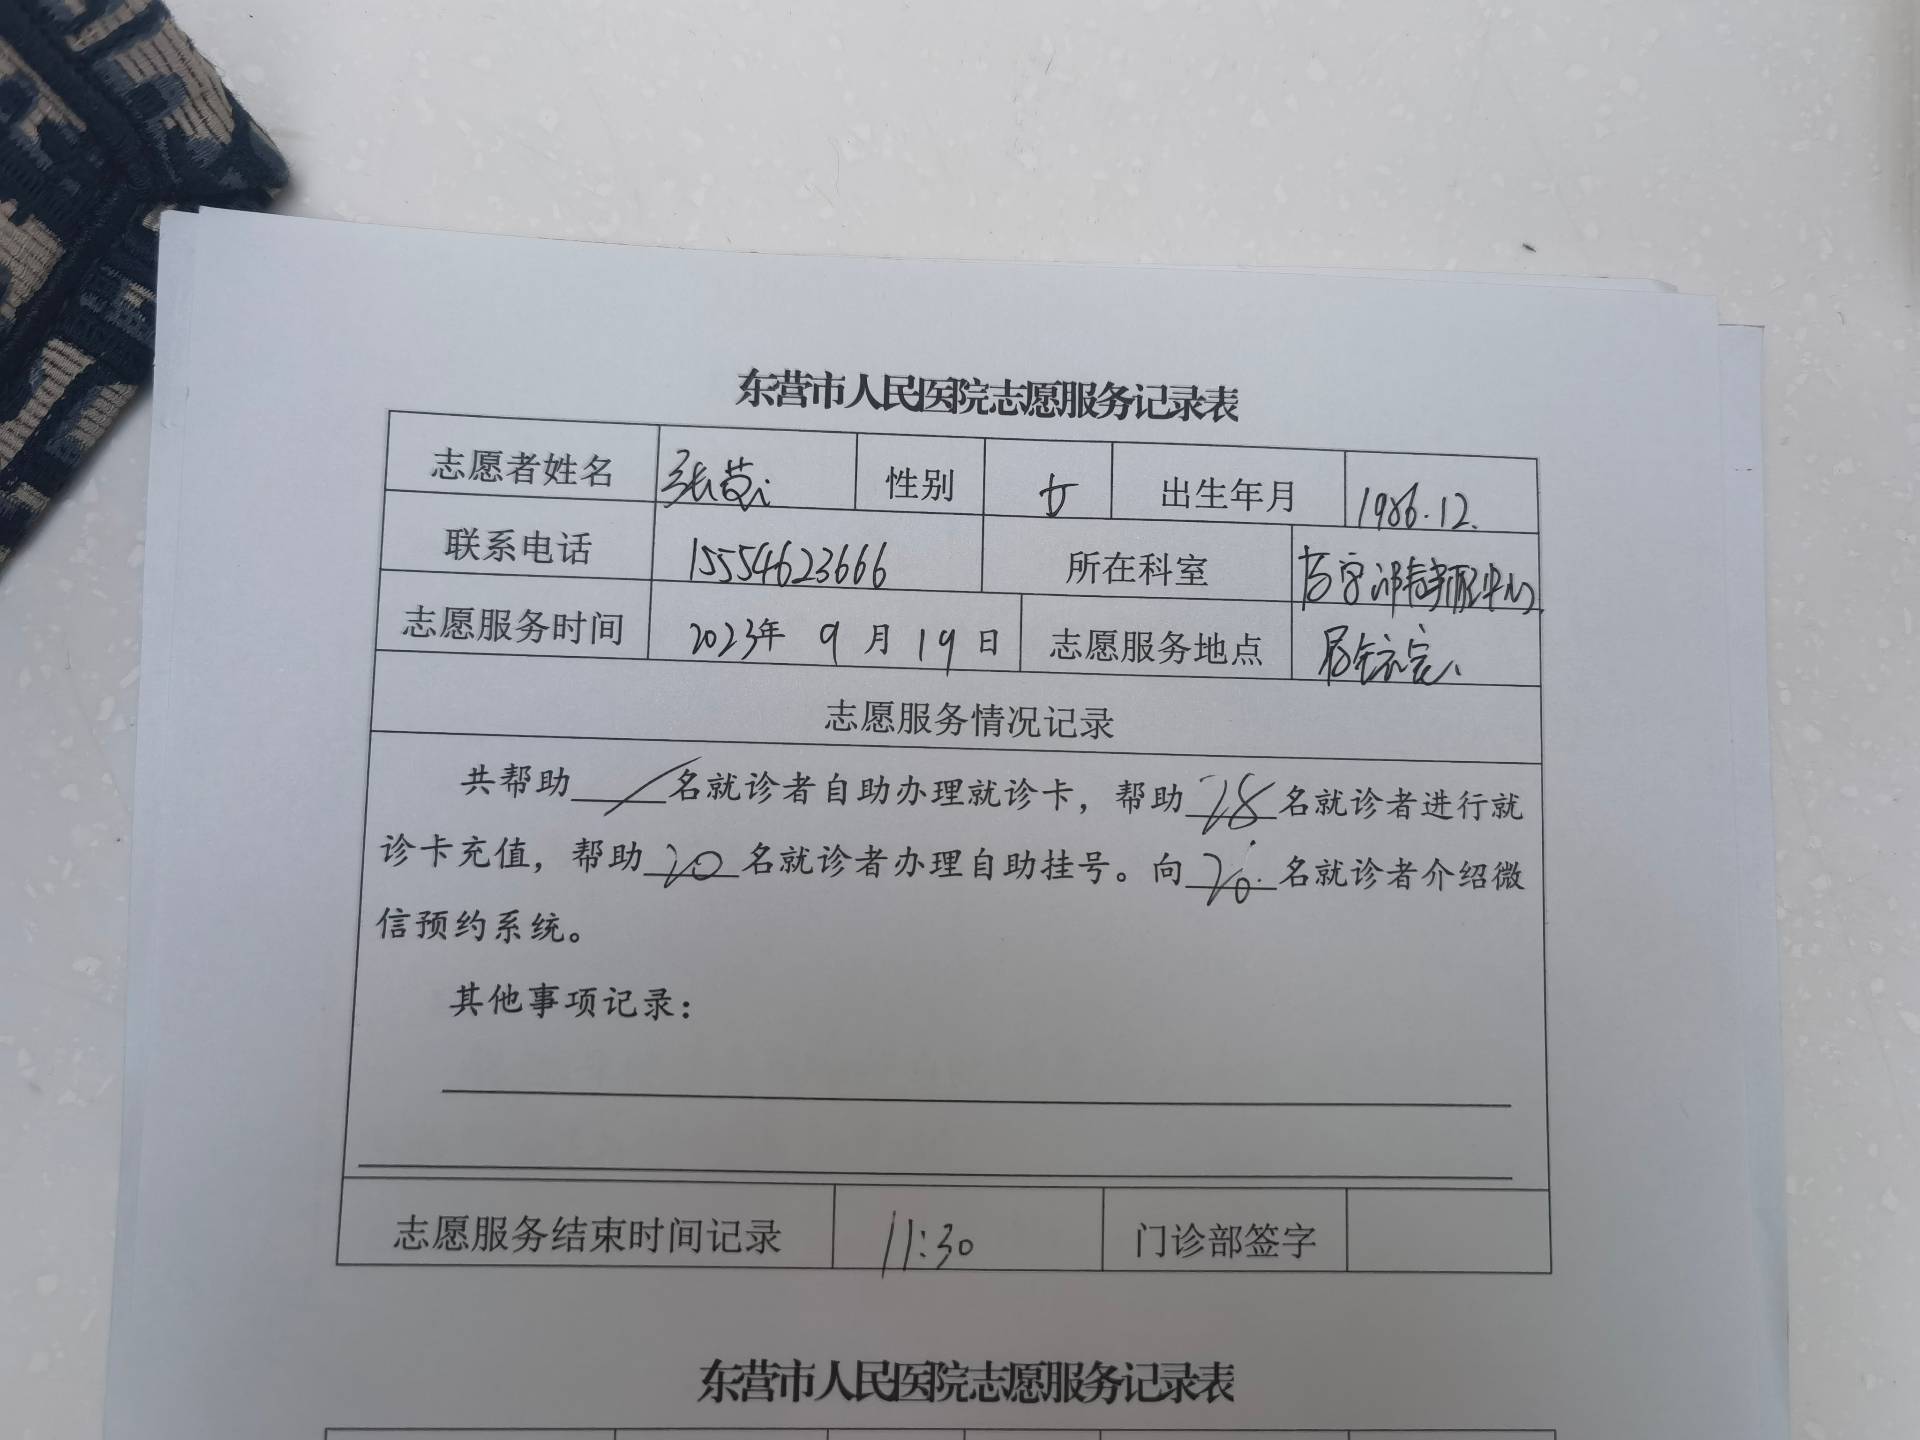 东营市人民医院志愿服务记录表
志愿者姓名 张 性别 女 出生年月 1986.12.
联系电话 15554623666 所在科室
志愿服务时间 2023年 9 月 19 日 志愿服务地点
志愿服务情况记录
共帮助 / 名就诊者自助办理就诊卡，帮助 28 名就诊者进行就
诊卡充值，帮助 20 名就诊者办理自助挂号。向 20 名就诊者介绍微
信预约系统。
其他事项记录：
志愿服务结束时间记录 11:30 门诊部签字
东营市人民医院志愿服务记录表